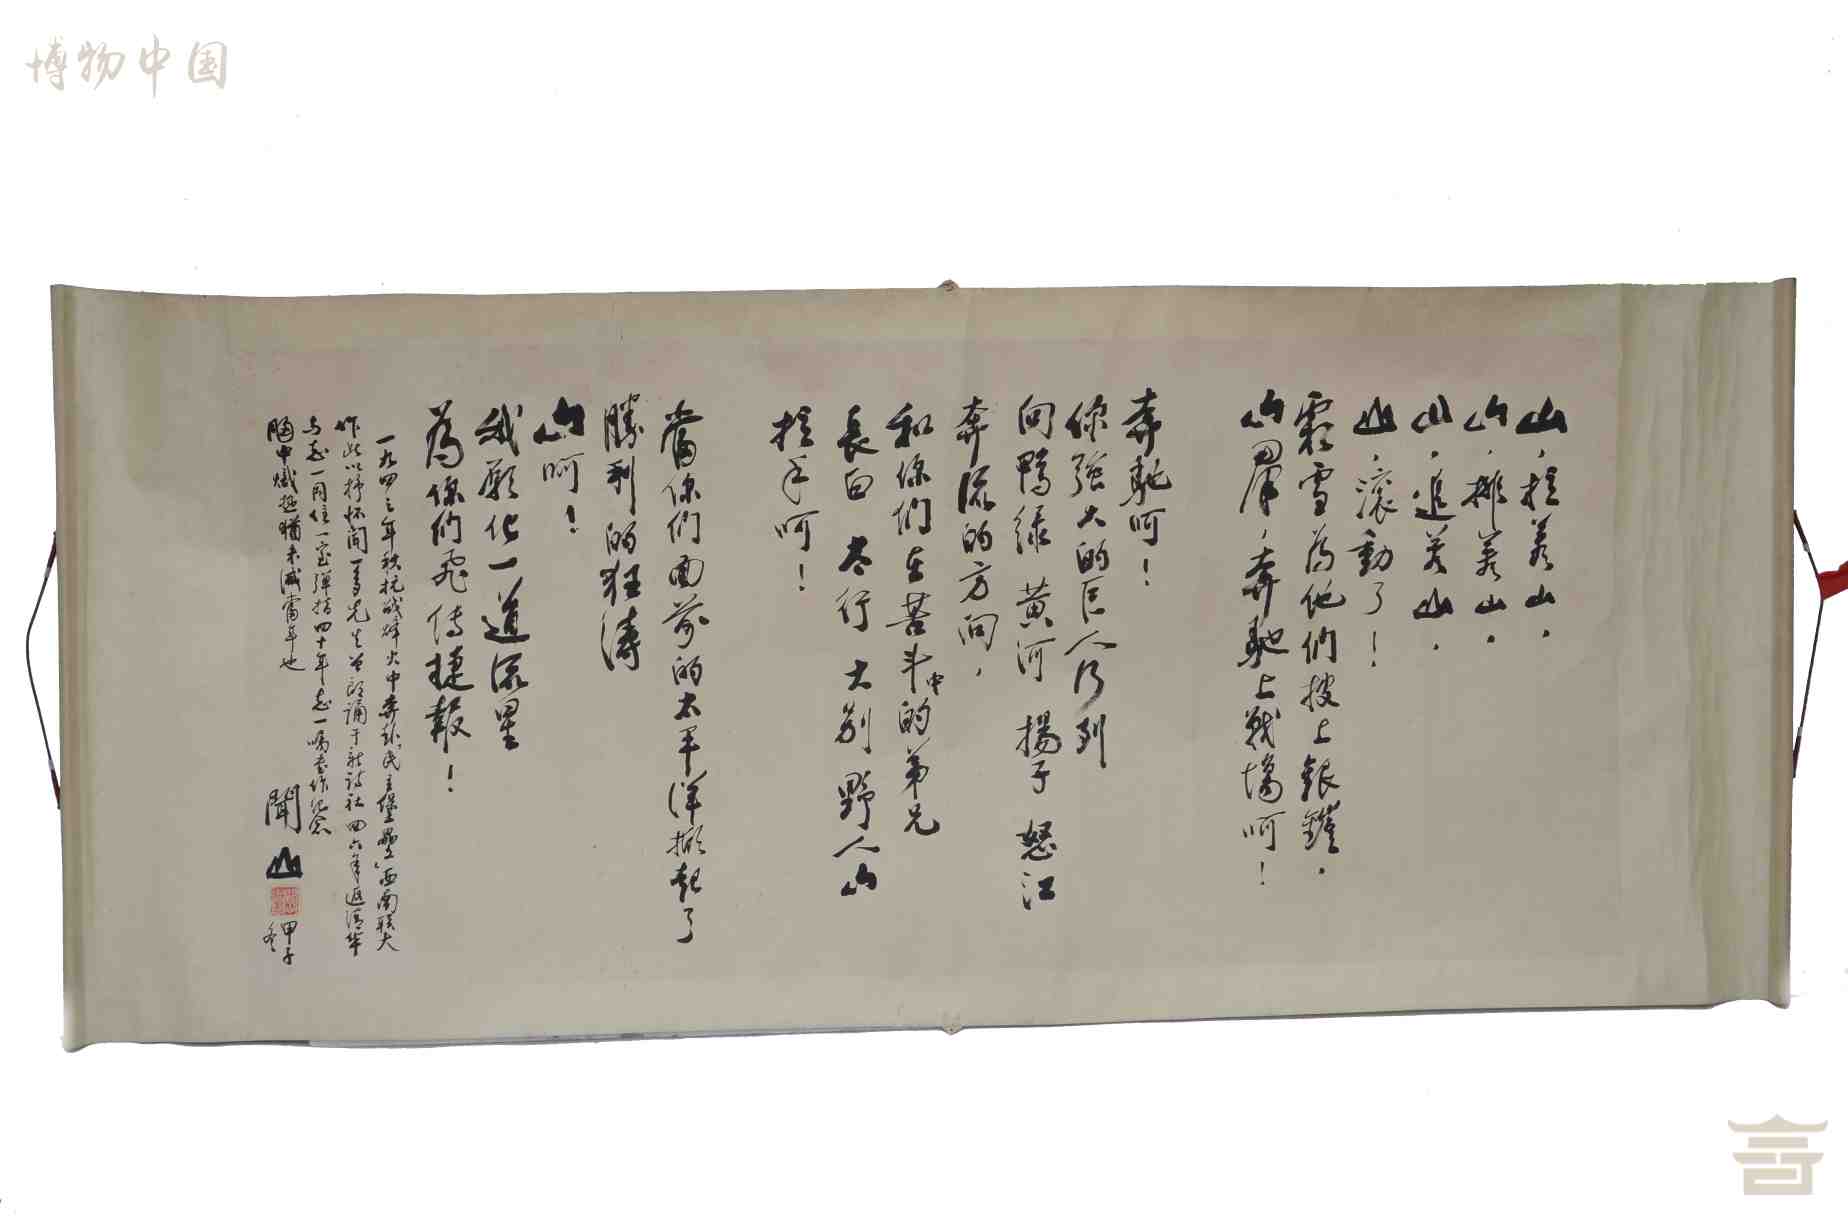 博物中国
山，拉着山，
山，推着山，
山，追着山，
山，滚動了！
霜雪為他們披上銀鎧，
山岳，奔馳上戰場呵！
奔馳呵！
你強大的巨人行列
向鴨绿 黄河 揚子 怒江
奔流的方向，
和你們在苦斗中的弟兄
長白 太行 大别 野人山
拉手呵！
當你們面前的太平洋掀起了
勝利的狂濤
山呵！
我願化一道流星
為你們飛传捷報！
一九四三年秋抗战烽火中奔赴民主堡壘，西南联大
作此以抒怀聞一多先生曾朗诵于新诗社四六年返清华
与志一同住一室弹指四十年志一嘱书作纪念
胸中熾熱猶未减當年也
聞山
甲子冬